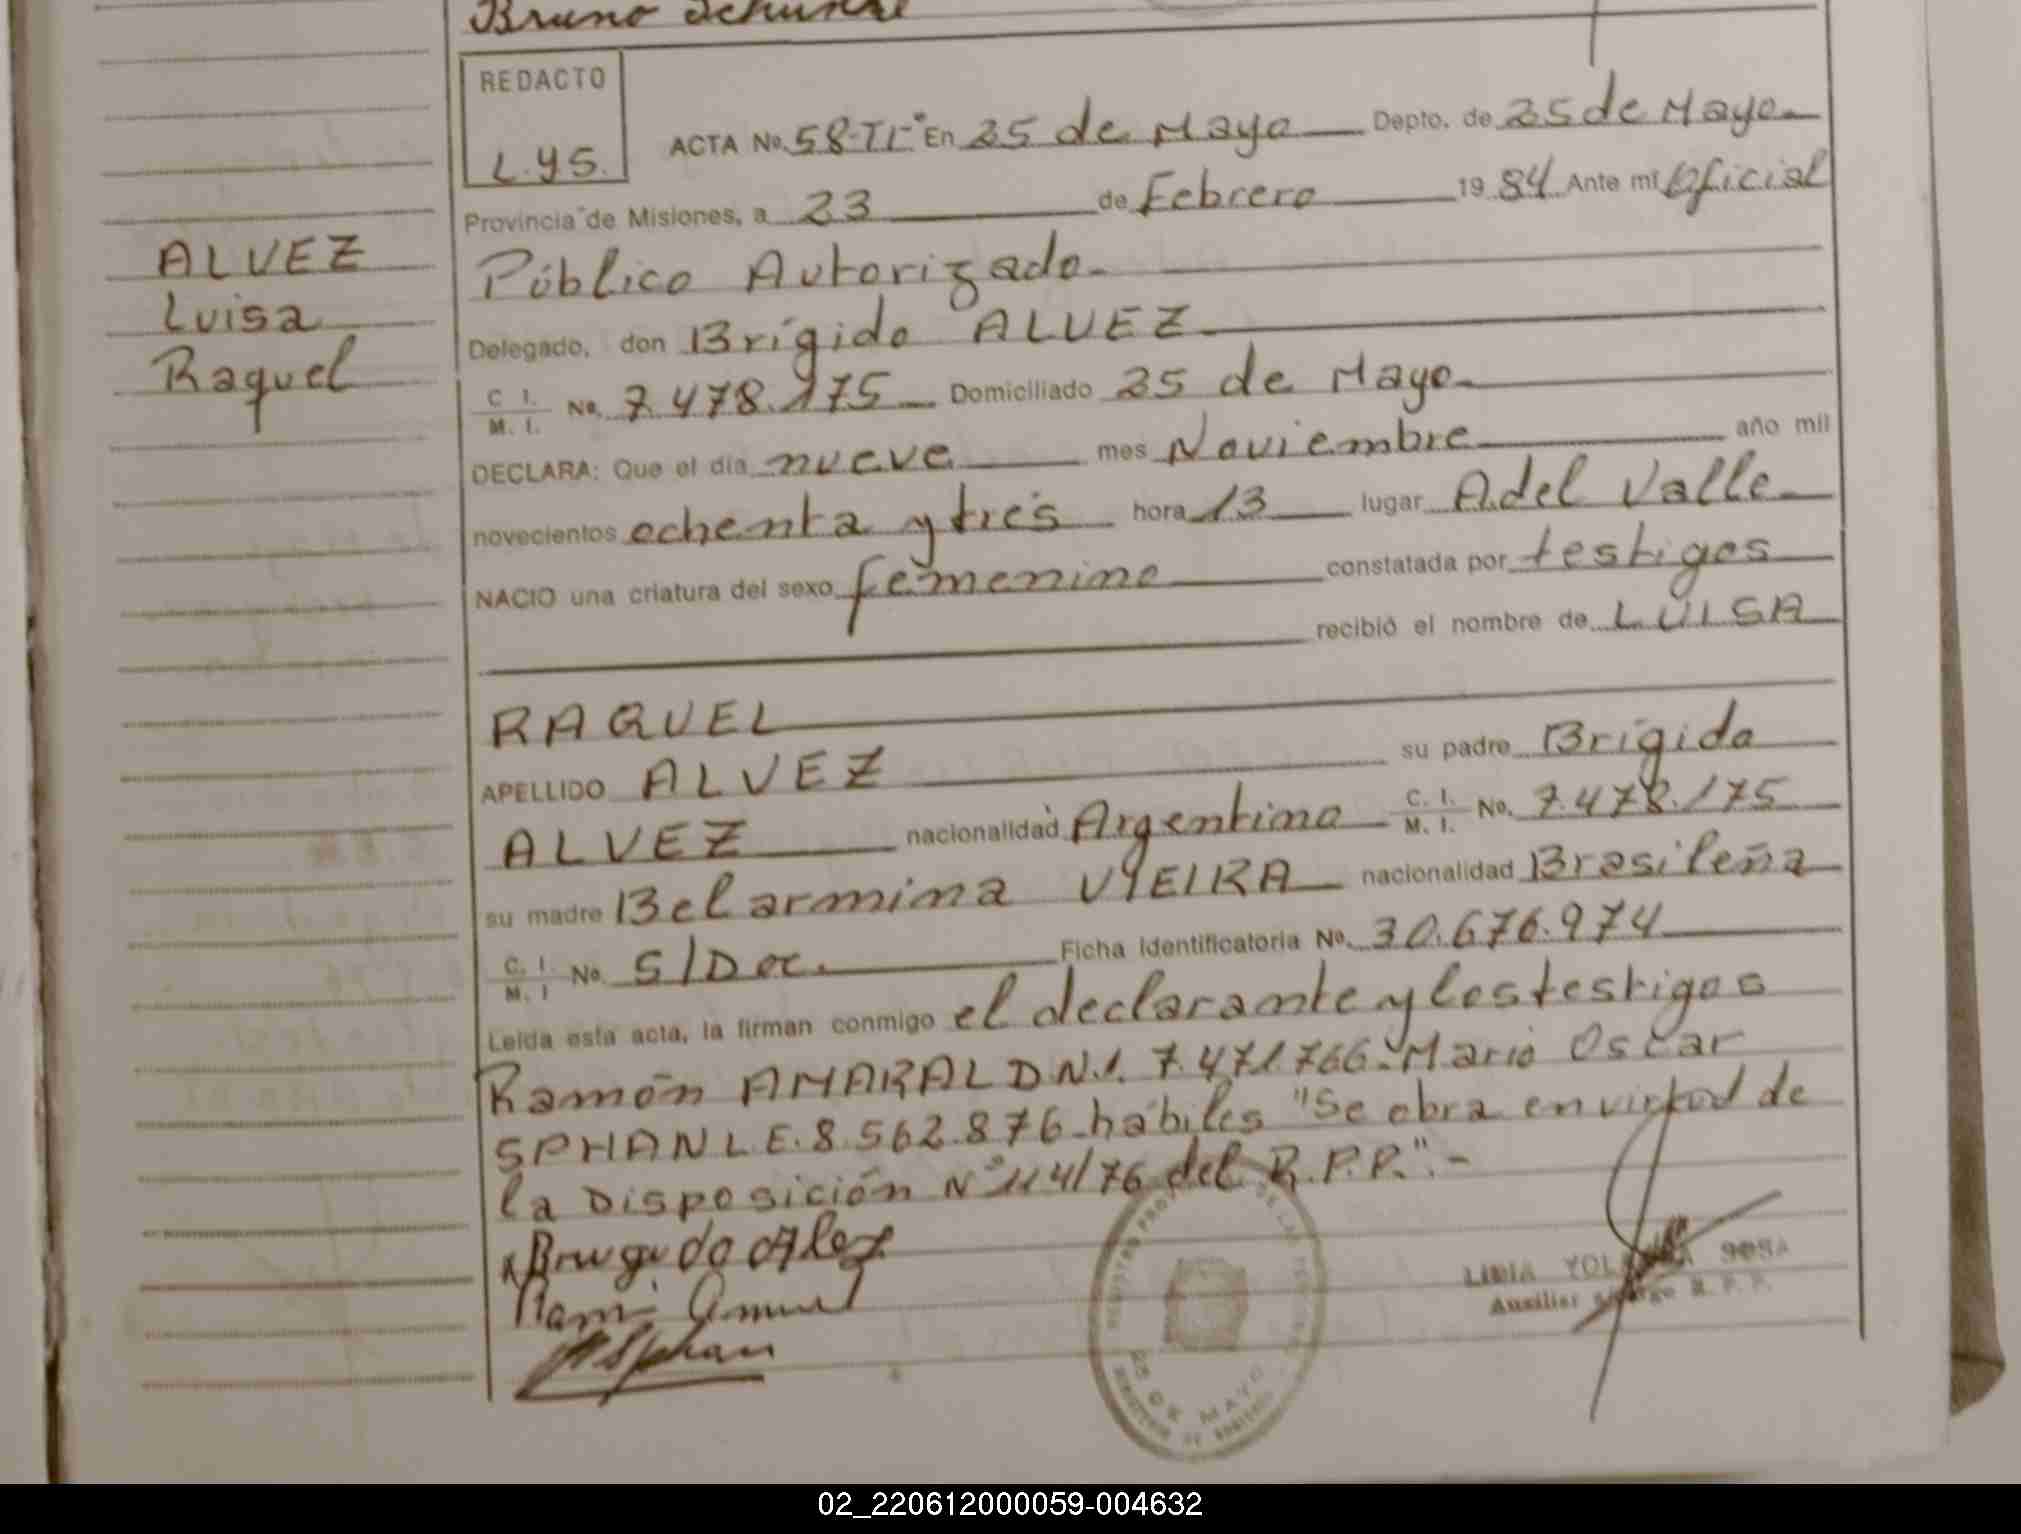 Bruno
REDACTO
L.Y.S.
ACTA No. 58-Tº En 25 de Mayo Depto. de 25 de Mayo
Provincia de Misiones, a 23 de Febrero 1984 Ante mi Oficial
Público Autorizado
ALVEZ
Luisa
Raquel
Delegado, don Brígido ALVEZ
C. I.
M. I. No. 7.478.175 Domiciliado 25 de Mayo
DECLARA: Que el día nueve mes Noviembre año mil
novecientos ochenta y tres hora 13 lugar A. del Valle
NACIO una criatura del sexo femenino constatada por testigos
recibió el nombre de LUISA
RAQUEL
APELLIDO ALVEZ su padre Brígido
ALVEZ nacionalidad Argentina C. I. M. I. No. 7.478.175
su madre Belarmina VIEIRA nacionalidad Brasileña
C. I. M. I No. S/Doc. Ficha Identificatoria No. 30.676.974
Leída esta acta, la firman conmigo el declarante y los testigos
Ramón AMARAL D.N.I. 7.471.766. Mario Oscar
SPHAN L.E. 8.562.876 hábiles "Se obra en virtud de
la Disposición Nº 114/76 del R.P.P.".-
25 DE MAYO
LIDIA SOSA
Auxiliar R. P. P.
02_220612000059-004632